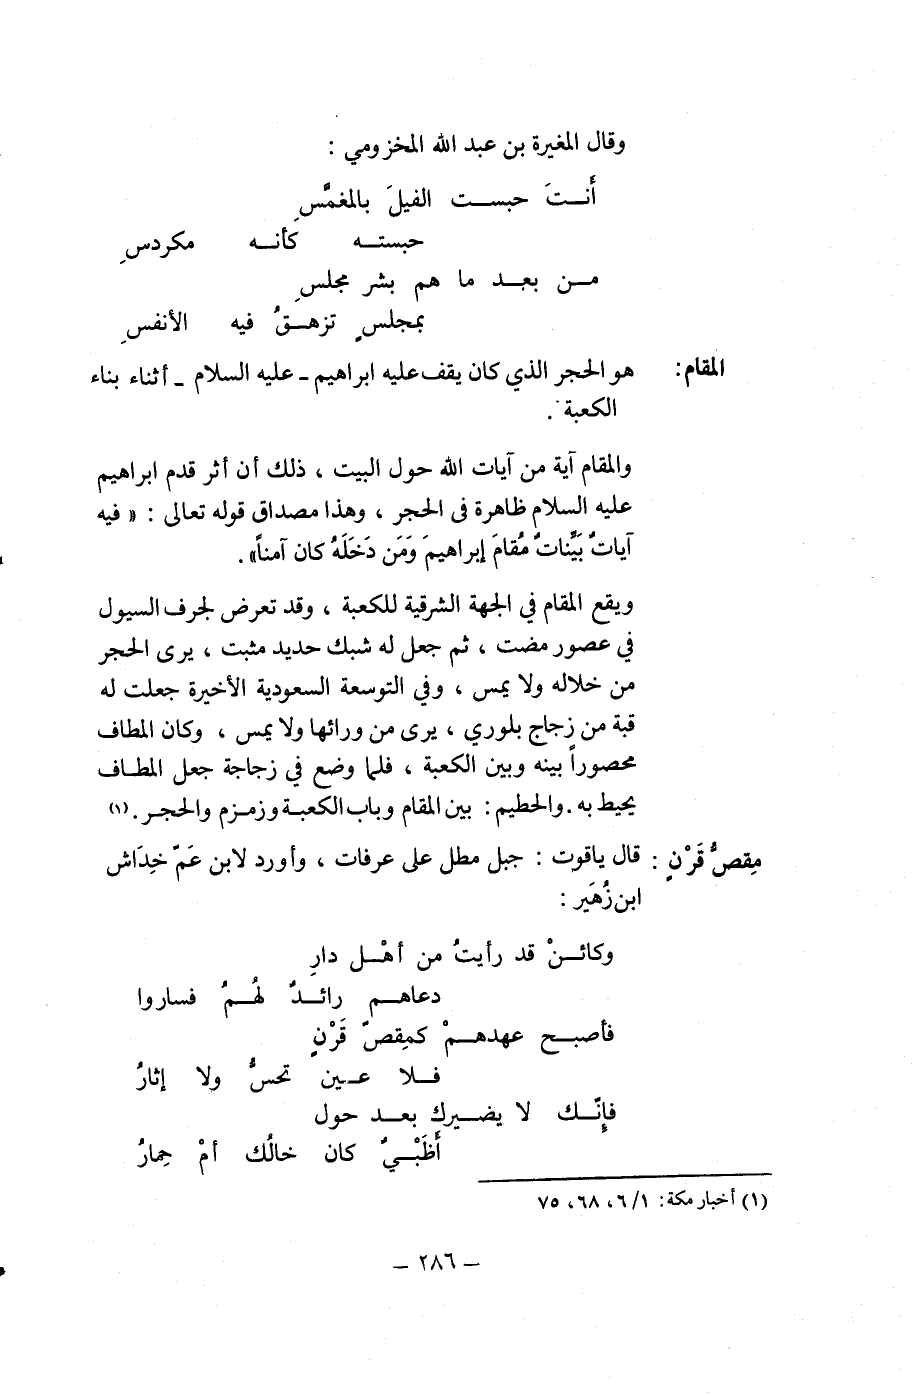 وقال المغيرة بن عبد الله المخزومي :
أَنـتَ حبسـت الفيلَ بالمغمَّسِ
حبستـه كأنـه مكردسِ
مـن بعـد ما هم بشر مجلسِ
بمجلسٍ تزهـقُ فيه الأنفسِ
المقام: هو الحجر الذي كان يقف عليه ابراهيم ـ عليه السلام ـ أثناء بناء
الكعبة .
والمقام آية من آيات الله حول البيت ، ذلك أن أثر قدم ابراهيم
عليه السلام ظاهرة في الحجر ، وهذا مصداق قوله تعالى : « فيه
آياتٌ بَيِّناتٌ مُقامَ إبراهيمَ وَمَن دَخَلَهُ كان آمناً» .
ويقع المقام في الجهة الشرقية للكعبة ، وقد تعرض لجرف السيول
في عصور مضت ، ثم جعل له شبك حديد مثبت ، يرى الحجر
من خلاله ولا يمس ، وفي التوسعة السعودية الأخيرة جعلت له
قبة من زجاج بلوري ، يرى من ورائها ولا يمس ، وكان المطاف
محصوراً بينه وبين الكعبة ، فلما وضع في زجاجة جعل المطـاف
يحيط به . والحطيم : بين المقام وباب الكعبـة وزمـزم والحجـر .(١)
مِقصُّ قَرْنٍ : قال ياقوت : جبل مطل على عرفات ، وأورد لابن عَمّ خِدَاش
ابن زُهَير :
وكائـنْ قد رأيتُ من أهْـل دارِ
دعاهـم رائـدٌ لهُـمُ فساروا
فأصبـح عهدهـمْ كمِقصّ قَرْنٍ
فـلا عـين تحسُّ ولا إثارُ
فإنّـك لا يضيرك بعـد حول
أَظَبْـيٌ كان خالُك أمْ حِمارُ
(١) أخبار مكة: ١/ ٦، ٦٨، ٧٥
– ٢٨٦ –